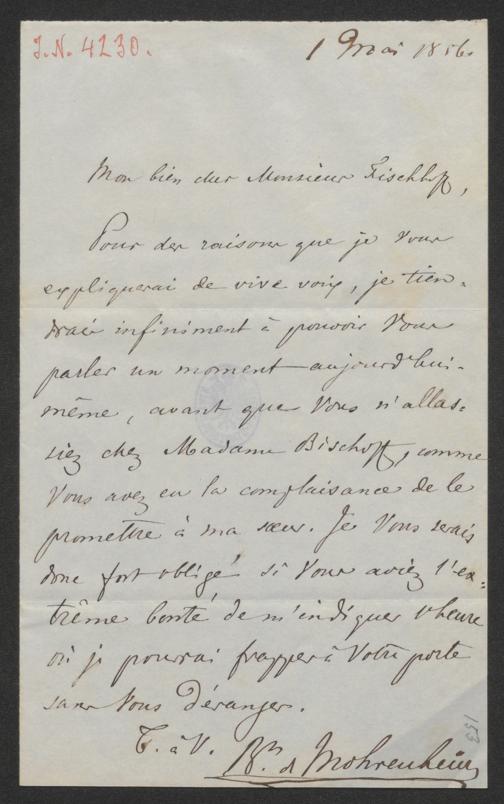 I. N. 4230.
1 Mai 1856.
Mon bien cher Monsieur Fischhoff,
Pour des raisons que je Vous
expliquerai de vive voix, je tien-
drais infiniment à pouvoir Vous
parler un moment aujourd'hui-
même, avant que Vous n'allas-
siez chez Madame Bischoff, comme
Vous avez eu la complaisance de le
promettre à ma sœur. Je Vous serais
donc fort obligé si Vous aviez l'ex-
trême bonté de m'indiquer l'heure
où je pourrai frapper à Votre porte
sans Vous déranger.
T. à V. Bn. de Mohrenheim
153